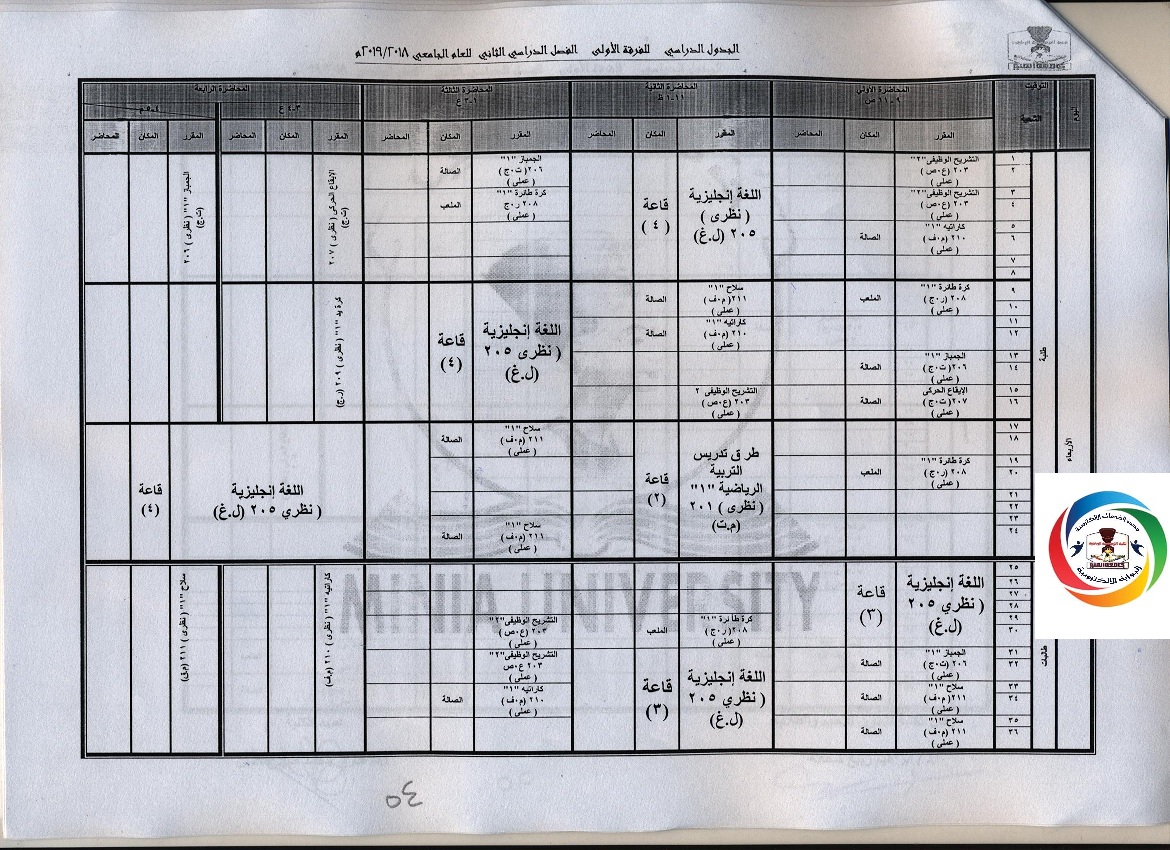 الجدول الدراسي للفرقة الأولى الفصل الدراسي الثاني للعام الجامعي ٢٠١٩/٢٠١٨م
اليوم
التوقيت
الشعبة
المحاضرة الأولى
٩ - ١١ ص
المحاضرة الثانية
١١-١ ظ
المحاضرة الثالثة
١-٣ ع
المحاضرة الرابعة
٣-٤ ع
المقرر المكان المحاضر
المقرر المكان المحاضر
المقرر المكان المحاضر
المقرر المكان المحاضر
المقرر المكان المحاضر
الأربعاء
طلبة
١
٢
التشريح الوظيفى"٢"
٢٠٣ (ع٠ص )
( عملى )
٣
٤
التشريح الوظيفى"٢"
٢٠٣ (ع٠ص )
( عملى )
٥
٦
كاراتيه "١"
٢١٠ (م٠ف )
( عملى )
الصالة
٧
٨
اللغة إنجليزية
( نظرى )
٢٠٥ (ل.غ)
قاعة
( ٤ )
الجمباز "١"
٢٠٦( ت٠ج )
( عملى )
الصالة
كرة طائرة "١"
٢٠٨ ر٠ج
( عملى )
الملعب
الإيقاع الحركى ( نظرى ) ٢٠٧
(ت.ج)
الجمباز "١" ( نظرى ) ٢٠٦
(ت.ج)
٩
١٠
كرة طائرة "١"
٢٠٨ ( ر٠ج )
( عملى )
الملعب
١١
١٢
١٣
١٤
الجمباز "١"
٢٠٦( ت٠ج )
( عملى )
الصالة
١٥
١٦
الإيقاع الحركى
٢٠٧( ت٠ج )
( عملى )
الصالة
سلاح "١"
٢١١( م٠ف )
( عملى )
الصالة
كاراتيه "١"
٢١٠ ( م٠ف )
( عملى )
الصالة
التشريح الوظيفى ٢
٢٠٣ ( ع٠ص )
( عملى )
اللغة إنجليزية
( نظرى ٢٠٥
(ل.غ)
قاعة
(٤)
كرة يد "١" ( نظرى ) ٢٠٩ (ر.ج)
١٧
١٨
١٩
٢٠
كرة طائرة "١"
٢٠٨ ( ر٠ج )
( عملى )
الملعب
٢١
٢٢
٢٣
٢٤
طرق تدريس
التربية
الرياضية "١"
( نظرى ) ٢٠١
(م.ت)
قاعة
(٢)
سلاح "١"
٢١١ (م٠ف )
( عملى )
الصالة
سلاح "١"
٢١١ (م٠ف )
( عملى )
الصالة
اللغة إنجليزية
( نظري ٢٠٥ (ل.غ)
قاعة
(٤)
طالبات
٢٥
٢٦
٢٧
٢٨
٢٩
٣٠
اللغة إنجليزية
( نظري ٢٠٥
(ل.غ)
قاعة
(٣)
٣١
٣٢
الجمباز "١"
٢٠٦ (ت٠ج )
( عملى )
الصالة
٣٣
٣٤
سلاح "١"
٢١١ (م٠ف )
( عملى )
الصالة
٣٥
٣٦
سلاح "١"
٢١١ (م٠ف )
( عملى )
الصالة
كرة طائرة "١"
٢٠٨( ر٠ج )
( عملى )
الملعب
اللغة إنجليزية
( نظري ٢٠٥
(ل.غ)
قاعة
(٣)
التشريح الوظيفى"٢"
٢٠٣ (ع٠ص )
( عملى )
التشريح الوظيفى"٢"
٢٠٣ ع٠ص
( عملى )
كاراتيه "١"
٢١٠ (م٠ف )
( عملى )
الصالة
كاراتيه "١" ( نظرى ) ٢١٠ (م.ف)
سلاح "١" ( نظرى ) ٢١١ (م.ف)
MINIA UNIVERSITY
البوابة الالكترونية